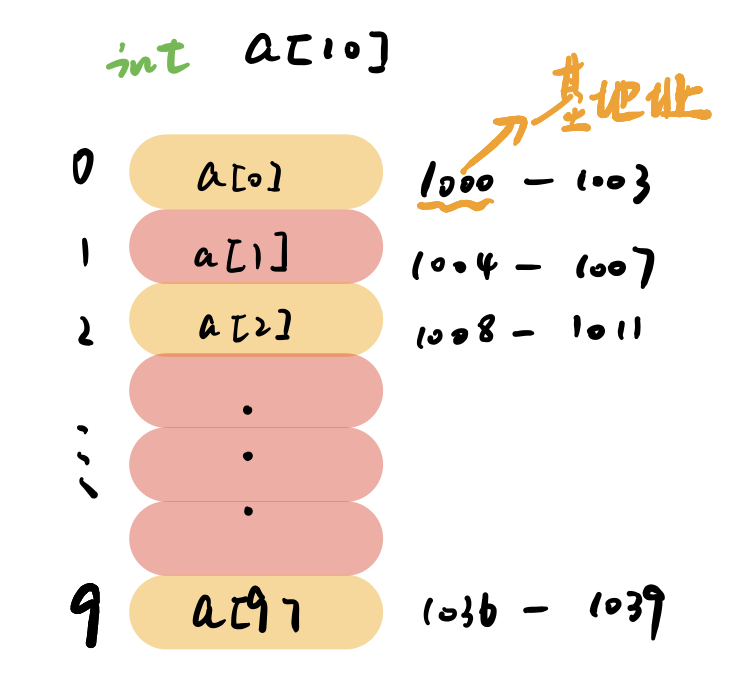 int a[10]
基地址
0 a[0] 1000 - 1003
1 a[1] 1004 - 1007
2 a[2] 1008 - 1011
9 a[9] 1036 - 1039